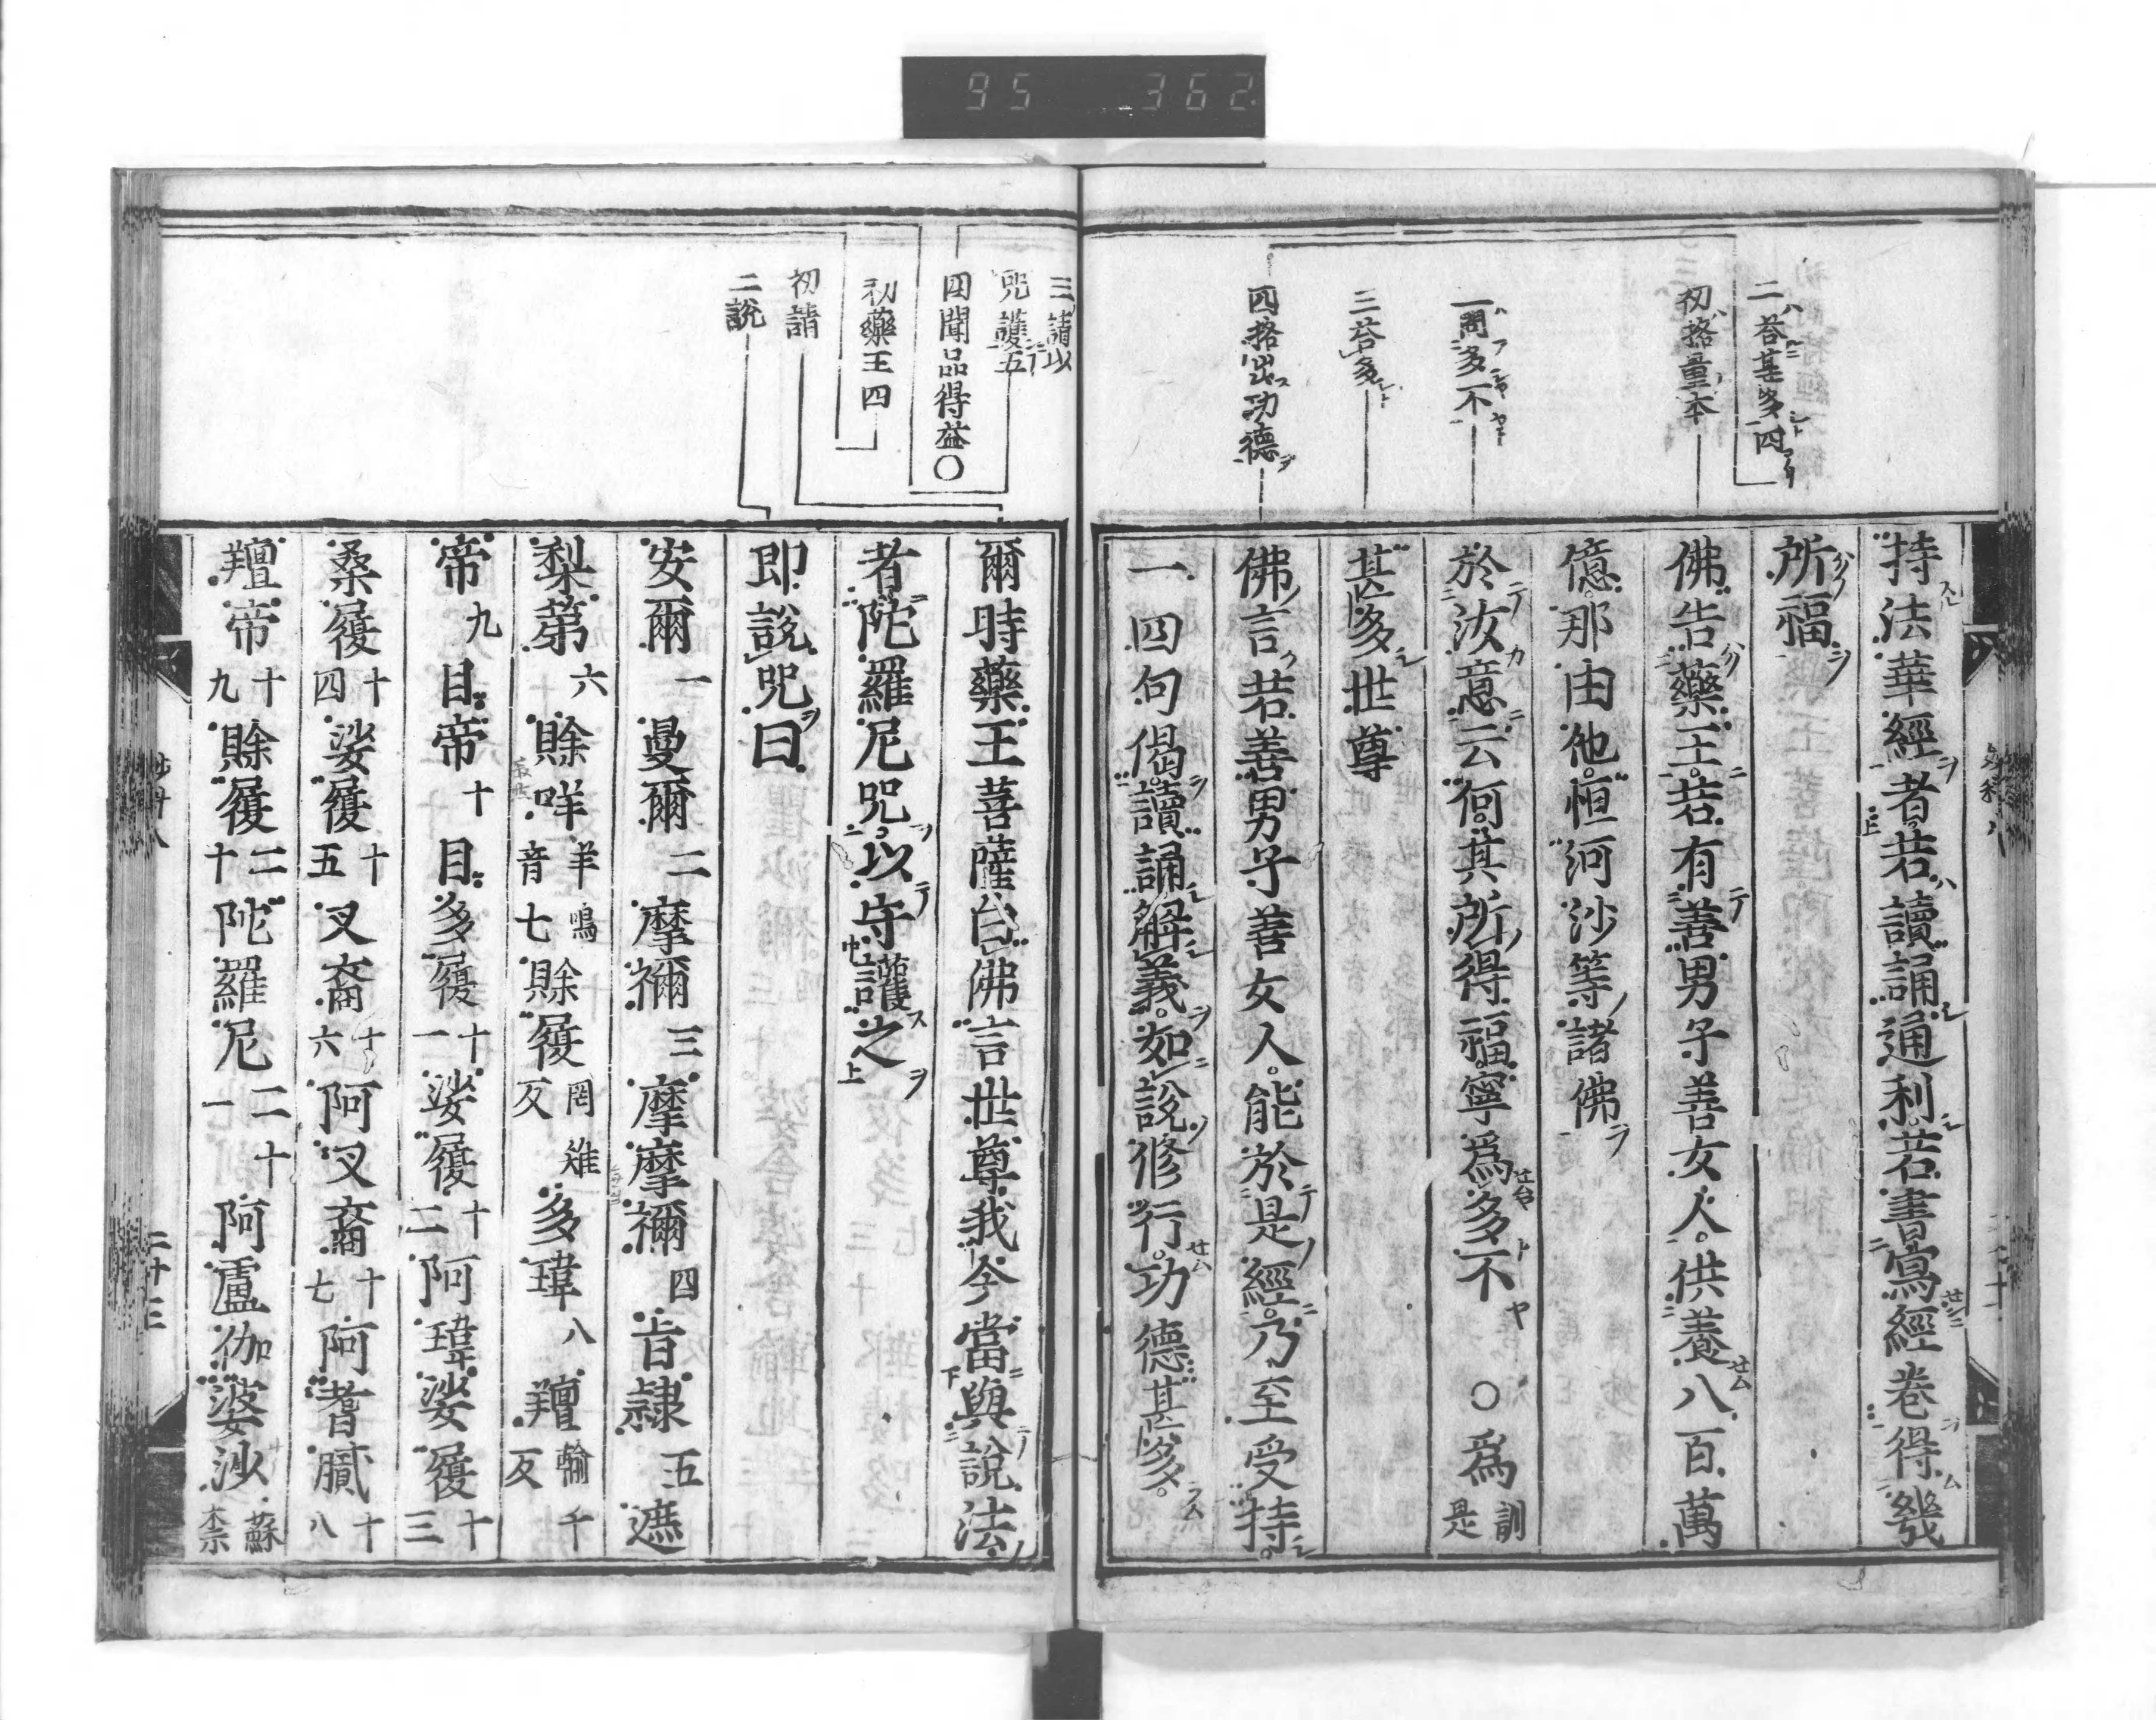 95 362
二答甚多四
初格量本
二問多不
三答多
四格出功德
持法華經者若讀誦通利若書寫經卷得幾
所福
佛告藥王若有善男子善女人供養八百萬
億那由他恒河沙等諸佛
於汝意云何其所得福寧爲多不 ○爲訓是
甚多世尊
佛言若善男子善女人能於是經乃至受持
一四句偈讀誦解義如說修行功德甚多
三請以
咒護五
四聞品得益○
初藥王四
初請
二說
爾時藥王菩薩白佛言世尊我今當與說法
者陀羅尼咒以守護之
即說咒曰
安爾一曼爾二摩禰三摩摩禰四旨隷五遮
梨第六賒咩羊鳴音七賒履罔雉反多瑋八羶輸千反
帝九目帝十目多履十一娑履十二阿瑋娑履十三
桑履十四娑履十五叉裔十六阿叉裔十七阿耆膩十八
羶帝十九賒履二十陀羅尼二十一阿盧伽婆沙蘇柰
二十三